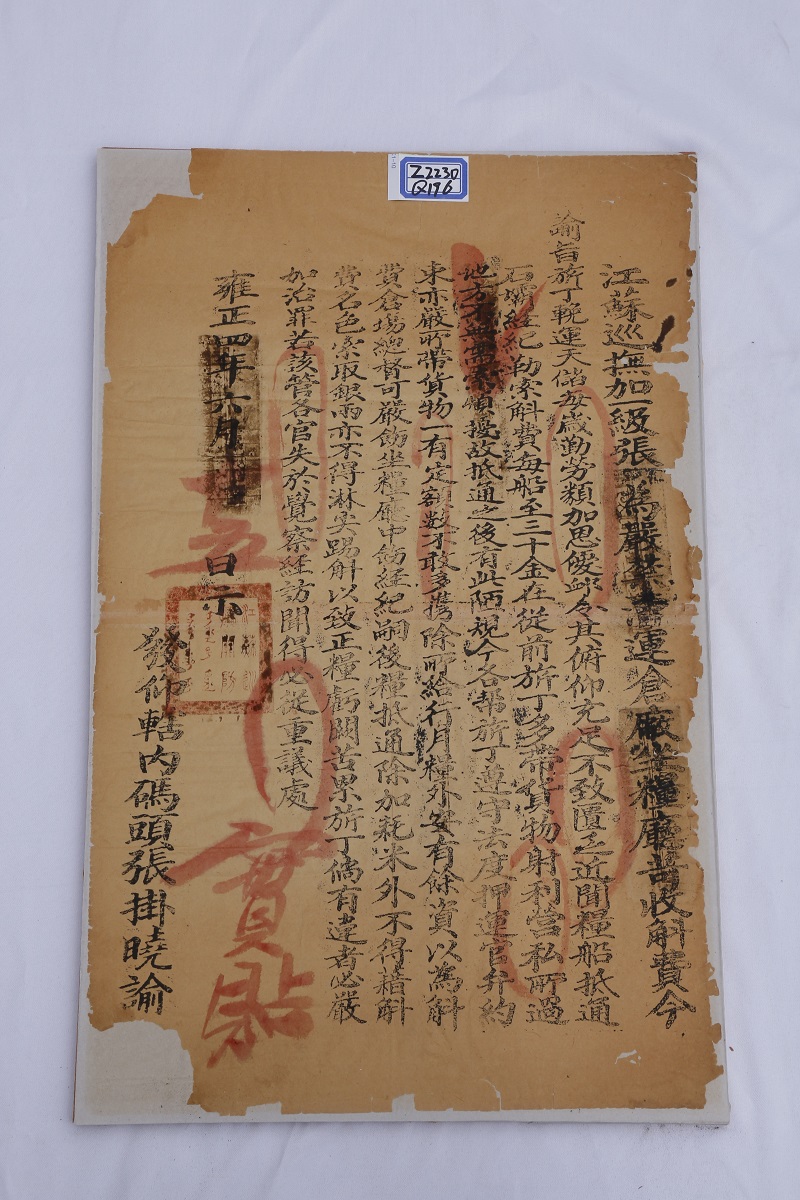 Z2230
Q176
江蘇巡撫加一級張 為嚴禁 運倉廠坐糧廳 收斛費今
諭旨旂丁輓運天儲每歲勤勞類加恩優卹令其俯仰充足不致匱乏近聞糧船抵通
石壩經紀勒索斛費每船至三十金在從前旂丁多帶貨物射利營私所過
地方 索煩擾故抵通之後有此陋規今各帮旂丁遵守法度押運官弁約
束亦嚴所帶貨物一有定額數不敢多攜除所給行月糧外安有餘資以為斛
費倉塲總督可嚴飭坐糧廳中飭經紀嗣後糧抵通除加耗米外不得藉斛
費名色索取銀兩亦不得淋尖踢斛以致正糧虧闕苦累旂丁倘有違者必嚴
加治罪若該管各官失於覺察經訪聞得必從重議處
雍正四年六月 十五 日示
實貼
發仰轄内碼頭張掛曉諭